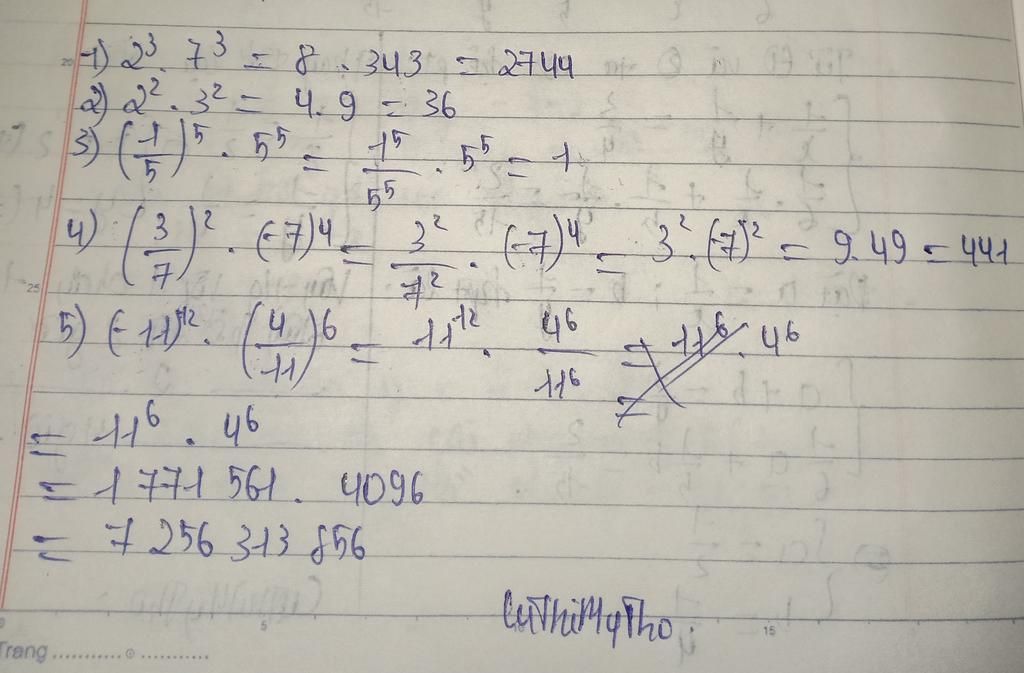 1) 2³ . 7³ = 8 . 343 = 2744
2) 2² . 3² = 4 . 9 = 36
3) (1/5)⁵ . 5⁵ = 1⁵/5⁵ . 5⁵ = 1
4) (3/7)² . (-7)⁴ = 3²/7² . (-7)⁴ = 3² . (-7)² = 9.49 = 441
5) (-11)¹² . (4/11)⁶ = 11¹² . 4⁶/11⁶ = 11⁶ . 4⁶
= 11⁶ . 4⁶
= 1 771 561 . 4096
= 7 256 313 856
CuThiMyTho.
Trang